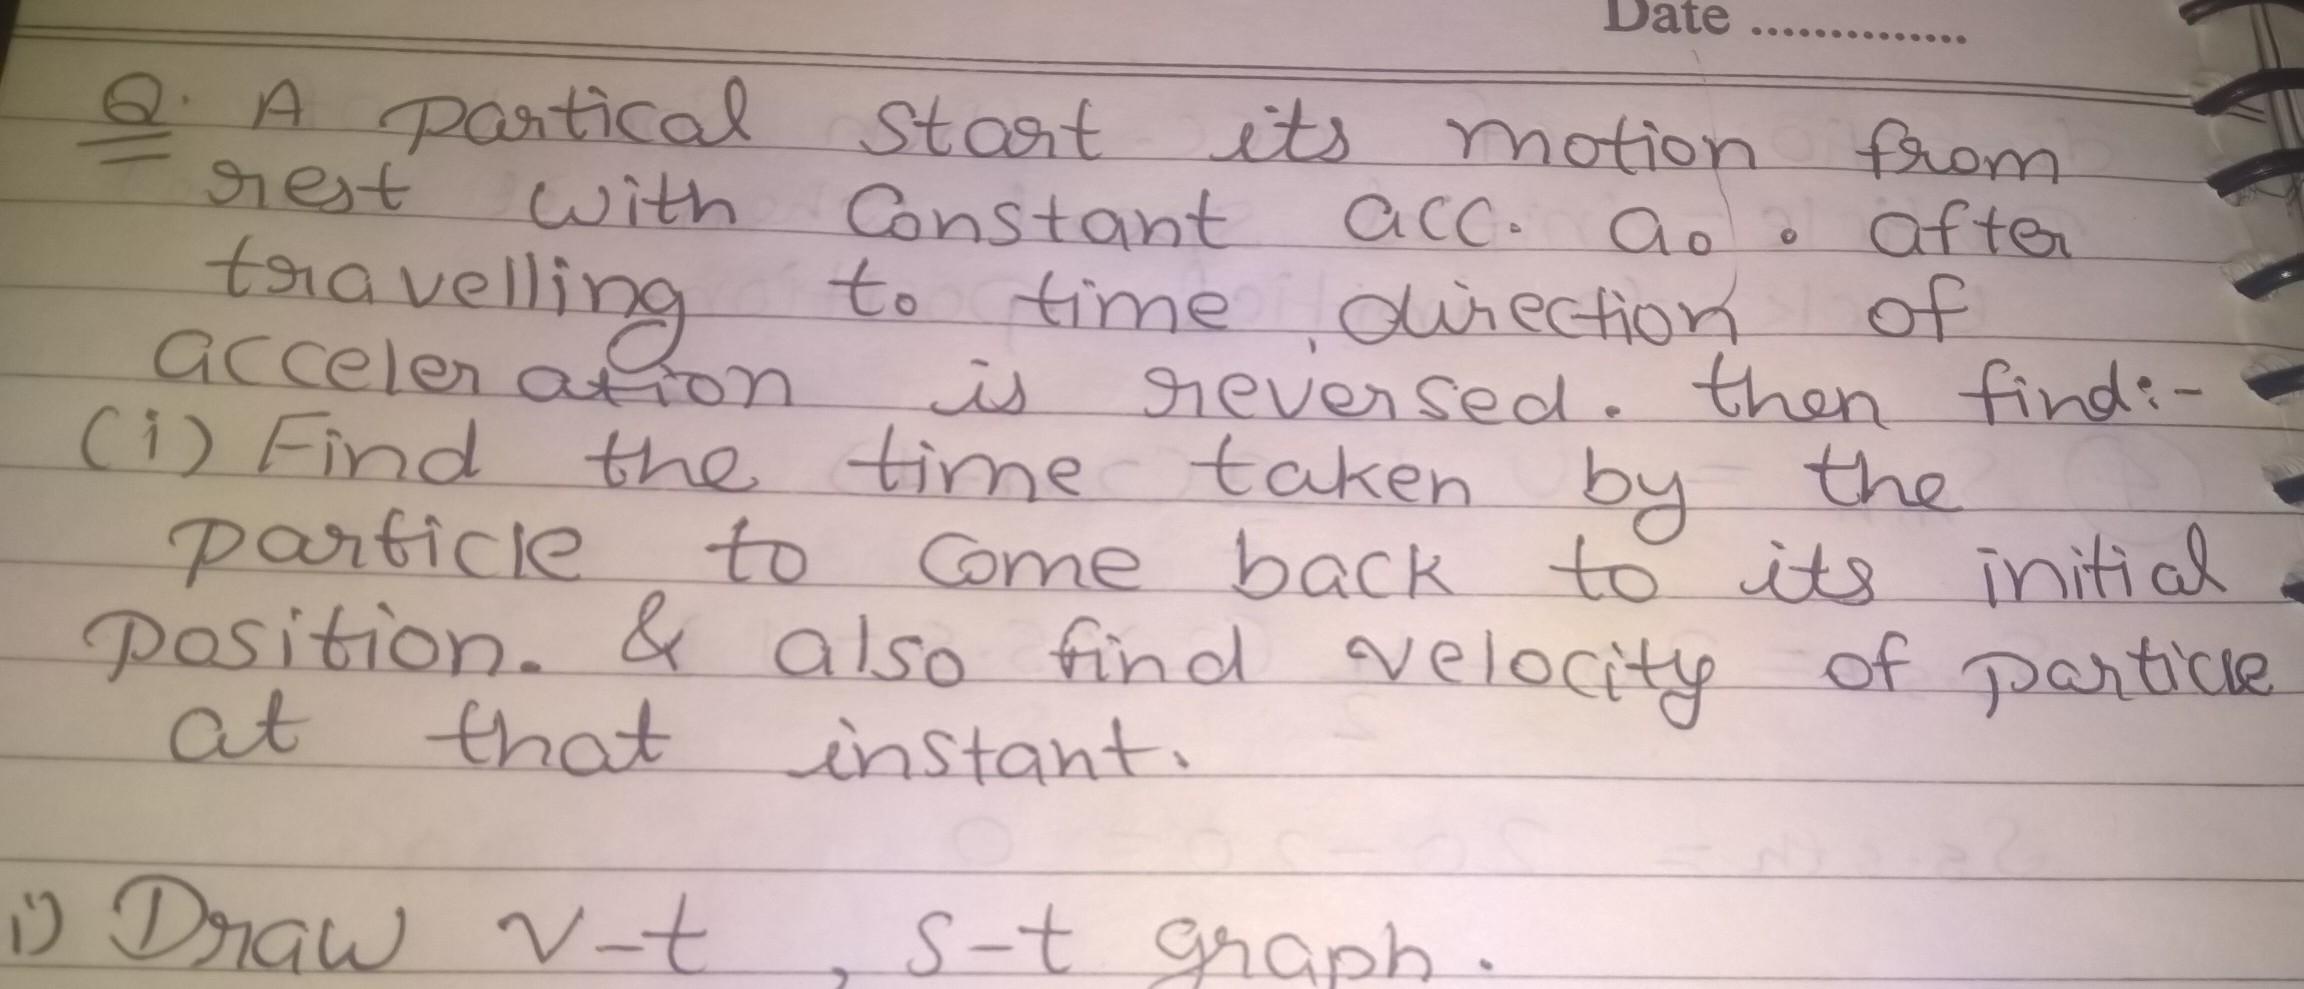 Date ..............
Q. A partical start its motion from
rest with constant acc. a₀. after
travelling t₀ time, direction of
acceleration is reversed. then find:-
(i) Find the time taken by the
particle to come back to its initial
position. & also find velocity of particle
at that instant.
i) Draw v-t, s-t graph.